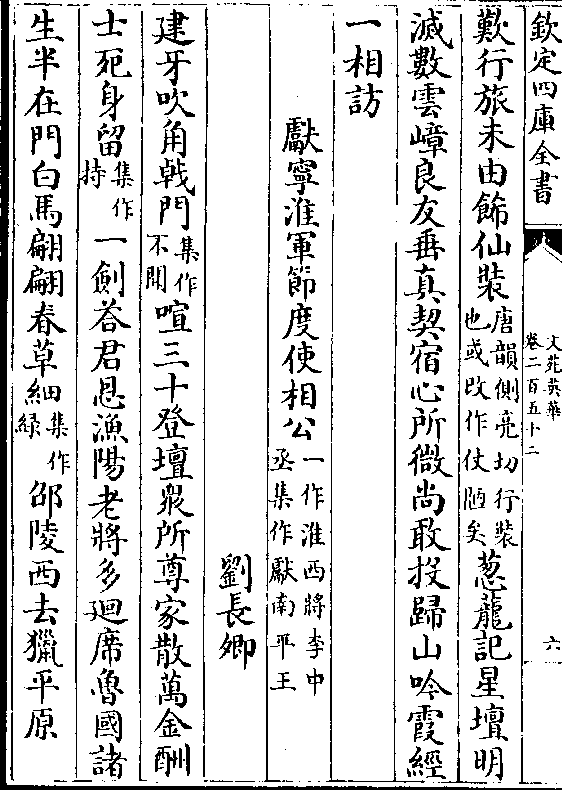 欽定四庫全書
文苑英華
卷二百五十二
六
歎行旅未由飾仙裝唐韻側亮切行裝也或改作仗陋矣葱蘢記星壇明
滅數雲嶂良友垂真契宿心所微尚敢投歸山吟霞經
一相訪
獻寧淮軍節度使相公一作淮西將李中丞集作獻南平王
劉長卿
建牙吹角戟門集作不聞喧三十登壇衆所尊家散萬金酬
士死身留集作持一劍荅君恩漁陽老將多廻席魯國諸
生半在門白馬翩翩春草細集作緑邵陵西去獵平原